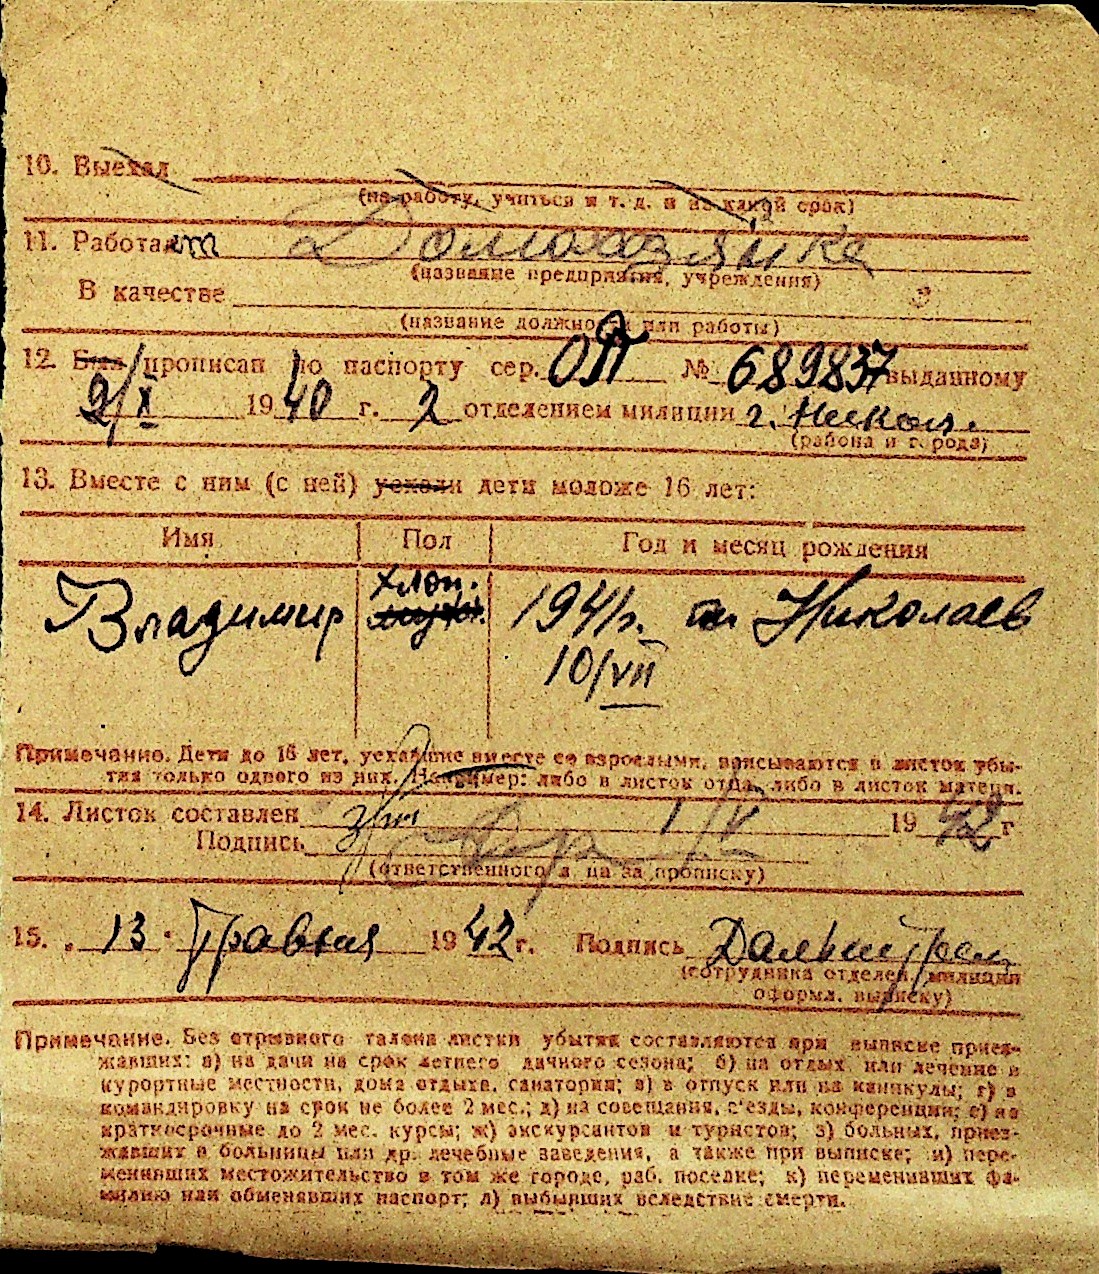 10. Выехал
(на работу, учиться и т. д. и на какой срок)
11. Работает Домохазяйка
(название предприятия, учреждения)
В качестве
(название должности или работы)
12. Был прописан по паспорту сер. ОП № 689837 выданному
9/X 1940 г. 2 отделением милиции г. Никол.
(района и города)
13. Вместе с ним (с ней) уехали дети моложе 16 лет:
Имя Пол Год и месяц рождения
Владимир хлоп. 1941 р. Николаев
10/VII
Примечание. Дети до 16 лет, уехавшие вместе со взрослыми, вписываются в листок убы-
тия только одного из них. Например: либо в листок отца, либо в листок матери.
14. Листок составлен 1/V 1942 г
Подпись
(ответственного лица за прописку)
15. „ 13 " Травня 1942 г. Подпись
(сотрудника отделен. милиции
оформл. выписку)
Примечание. Без отрывного талона листки убытия составляются при выписке приез-
жавших: а) на дачи на срок летнего дачного сезона; б) на отдых или лечение в
курортные местности, дома отдыха, санатории; в) в отпуск или на каникулы; г) в
командировку на срок не более 2 мес.; д) на совещания, с'езды, конференции; е) на
краткосрочные до 2 мес. курсы; ж) экскурсантов и туристов; з) больных, приез-
жавших в больницы или др. лечебные заведения, а также при выписке; и) пере-
менивших местожительство в том же городе, раб. поселке; к) переменивших фа-
милию или обменявших паспорт; л) выбывших вследствие смерти.